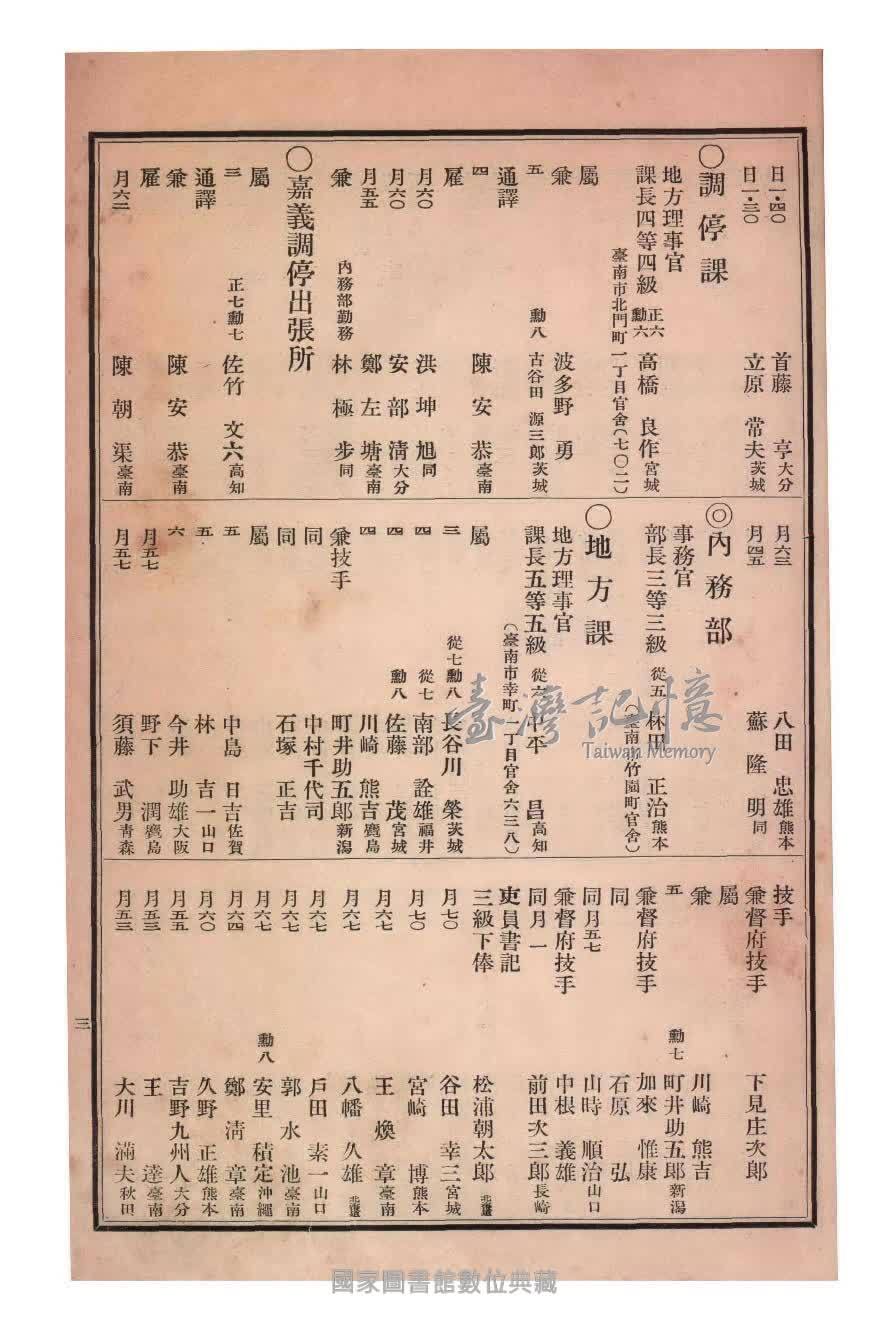 日一・四〇 首藤 亨 大分
日一・三〇 立原 常夫 茨城
〇調停課
地方理事官
課長四等四級 正六勳六 高橋 良作 宮城
臺南市北門町一丁目官舍(七〇二)
屬
兼 波多野 勇
五 勳八 古谷田 源三郎 茨城
通譯
四 陳 安 恭 臺南
雇
月六〇 洪 坤 旭 同
月六〇 安部 清 大分
月五五 鄭 左 塘 臺南
兼 內務部勤務 林 極 步 同
〇嘉義調停出張所
屬
三 正七勳七 佐竹 文六 高知
通譯
兼 陳 安 恭 臺南
雇
月六二 陳 朝 渠 臺南
月六三 八田 忠雄 熊本
月四五 蘇 隆 明 同
◎內務部
事務官
部長三等三級 從五 林田 正治 熊本
(臺南市竹園町官舍)
〇地方課
地方理事官
課長五等五級 從六 中平 昌 高知
(臺南市幸町一丁目官舍六三八)
屬
三 從七勳八 長谷川 榮 茨城
四 從七 南部 詮雄 福井
四 勳八 佐藤 茂 宮城
四 川崎 熊吉 鹿島
兼技手 町井助五郎 新潟
同 中村千代司
同 石塚 正吉
屬
五 中島 日吉 佐賀
五 林 吉一 山口
六 今井 助雄 大阪
月五七 野下 潤 鹿島
月五七 須藤 武男 青森
技手
兼督府技手 下見庄次郎
屬
兼 川崎 熊吉
五 勳七 町井助五郎 新潟
兼督府技手 加來 惟康
同 石原 弘
同月五七 山時 順治 山口
兼督府技手 中根 義雄
同月一 前田次三郎 長崎
吏員書記
三級下俸 松浦朝太郎 北海道
月七〇 谷田 幸三 宮城
月七〇 宮崎 博 熊本
月六七 王 煥 章 臺南
月六七 八幡 久雄 北海道
月六七 戶田 素一 山口
月六七 郭 水 池 臺南
月六七 勳八 安里 積定 沖繩
月六四 鄭 淸 章 臺南
月六〇 久野 正雄 熊本
月五五 吉野九州人 大分
月五三 王 逹 臺南
月五三 大川 滿夫 秋田
三
臺灣記憶
Taiwan Memory
國家圖書館數位典藏